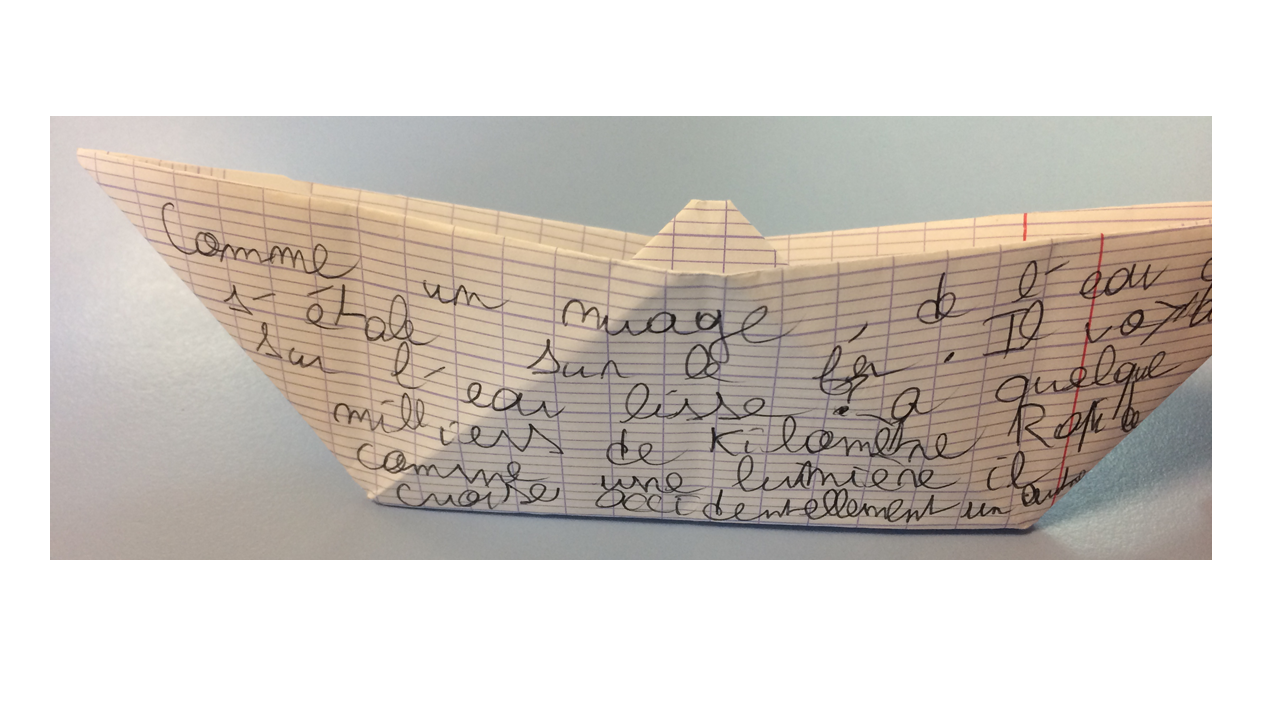 Comme un nuage, de l'eau
s'étale sur le fer. Il
sur l'eau lisse à quelque
milliers de Kilomètre
comme une lumière il
croise accidentellement un autre